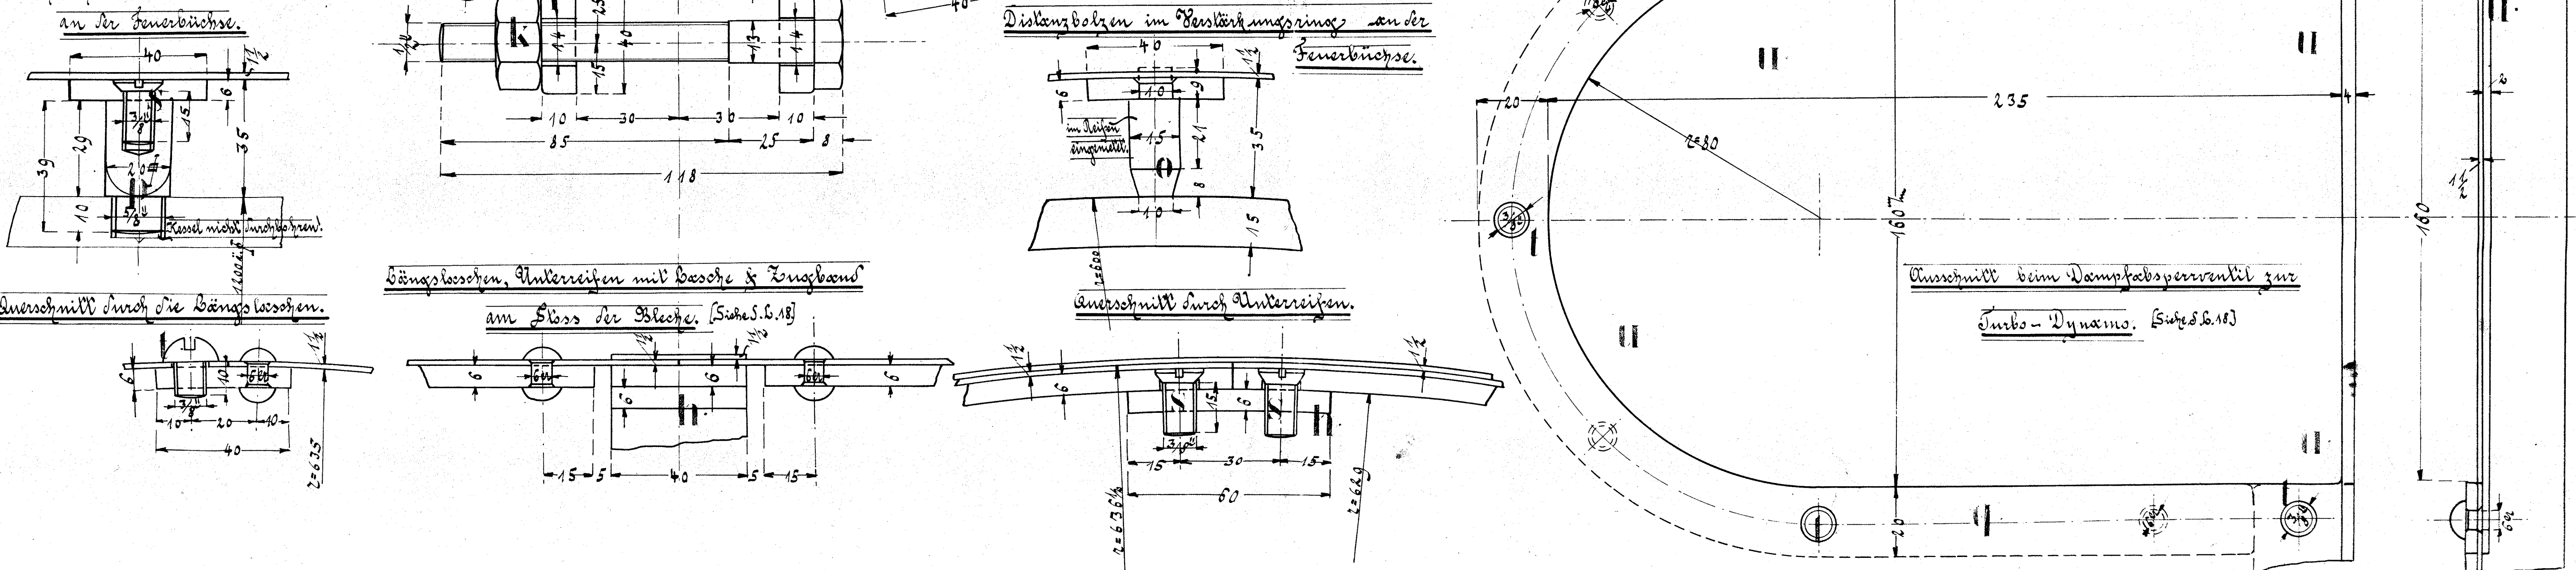 an der Feuerbüchse.
40
1½
6
15
3/8"
29
39
35
20
10
5/8"
Kessel nicht durchbohren!
Querschnitt durch die Längslaschen.
1½
6
10
6er
3/8"
10 20 10
40
r=635
k
½"
14
25
40
15
13
14
10 30 30 10
85 25 8
118
Längslaschen, Unterreifen mit Lasche & Zugband
am Stoss der Bleche. [Siehe S.L.18]
1½
1½
6
6er
6
6
6er
6
h
15 5 40 5 15
Distanzbolzen im Verstärkungsring an der
Feuerbüchse.
40
1½
6
10
9
im Reifen
eingenietet.
15
21
35
8
10
15
r=600
Querschnitt durch Unterreifen.
1½
6
s
15
6
s
h
1½
3/8"
15 30 15
60
r=636½
r=629
u
u
120
235
4
r=80
3/8"
t
160
Ausschnitt beim Dampfabsperrventil zur
Turbo-Dynamo. [Siehe S.L.18]
u
u
q
t
t
20
3/8"
2
1½
160
6er